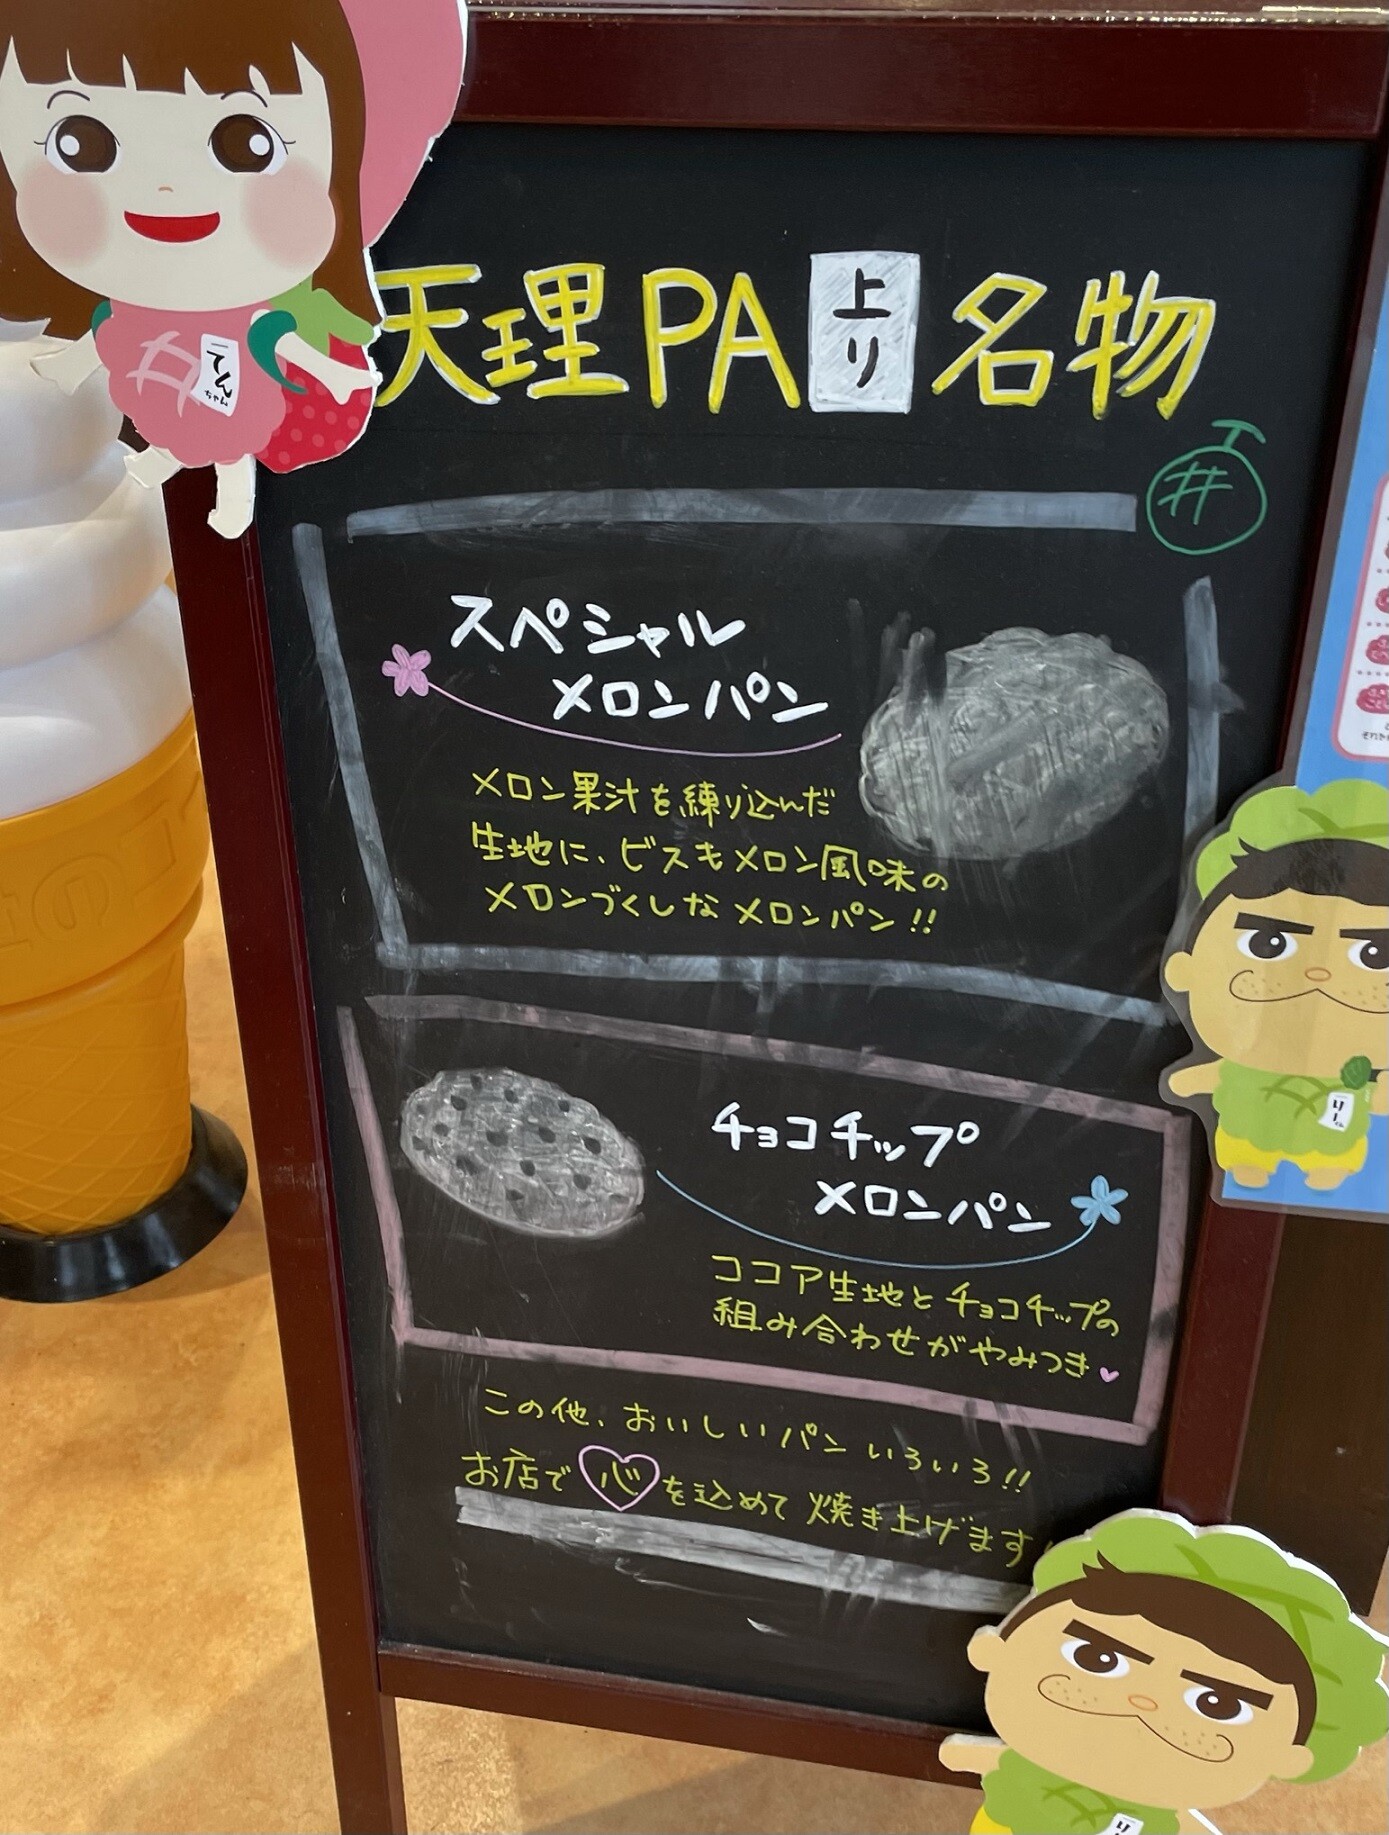 天理PA上り名物
スペシャル
メロンパン
メロン果汁を練り込んだ
生地に、ビスもメロン風味の
メロンづくしなメロンパン!!
チョコチップ
メロンパン
ココア生地とチョコチップの
組み合わせがやみつき♥
この他、おいしいパンいろいろ!!
お店で心を込めて焼き上げます
てんちゃん